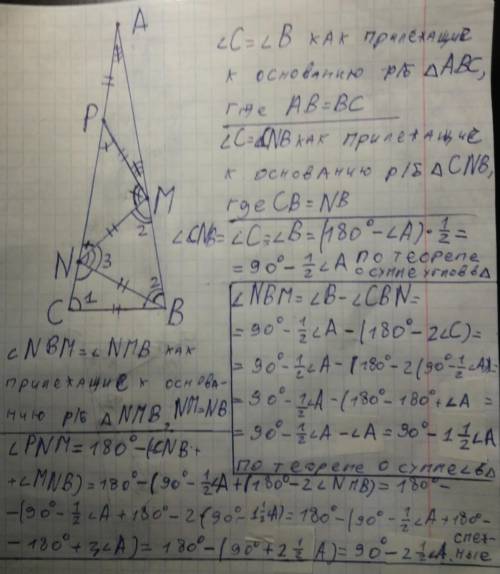 A
P
M
2
N
3
C
1
2
B
∠C=∠B как прилежащие
к основанию р/б △ABC,
где AB=BC
∠C=∠CNB как прилежащие
к основанию р/б △CNB,
где CB=NB
∠CNB=∠C=∠B=(180°-∠A)·1/2=
=90°-1/2∠A по теореме
о сумме углов в △
∠NBM=∠B-∠CBN=
=90°-1/2∠A-(180°-2∠C)=
=90°-1/2∠A-(180°-2(90°-1/2∠A))=
=90°-1/2∠A-(180°-180°+∠A=
=90°-1/2∠A-∠A=90°-1 1/2∠A
по теореме о сумме ∠в△
∠NBM=∠NMB как
прилежащие к основа-
нию р/б △NMB, NM=NB
∠PNM=180°-(∠CNB+
+∠MNB)=180°-(90°-1/2∠A+(180°-2∠NMB)=180°-
-(90°-1/2∠A+180°-2(90°-1 1/2∠A)=180°-(90°-1/2∠A+180°-
-180°+3∠A)=180°-(90°+2 1/2∠A)=90°-2 1/2∠A.
смежные